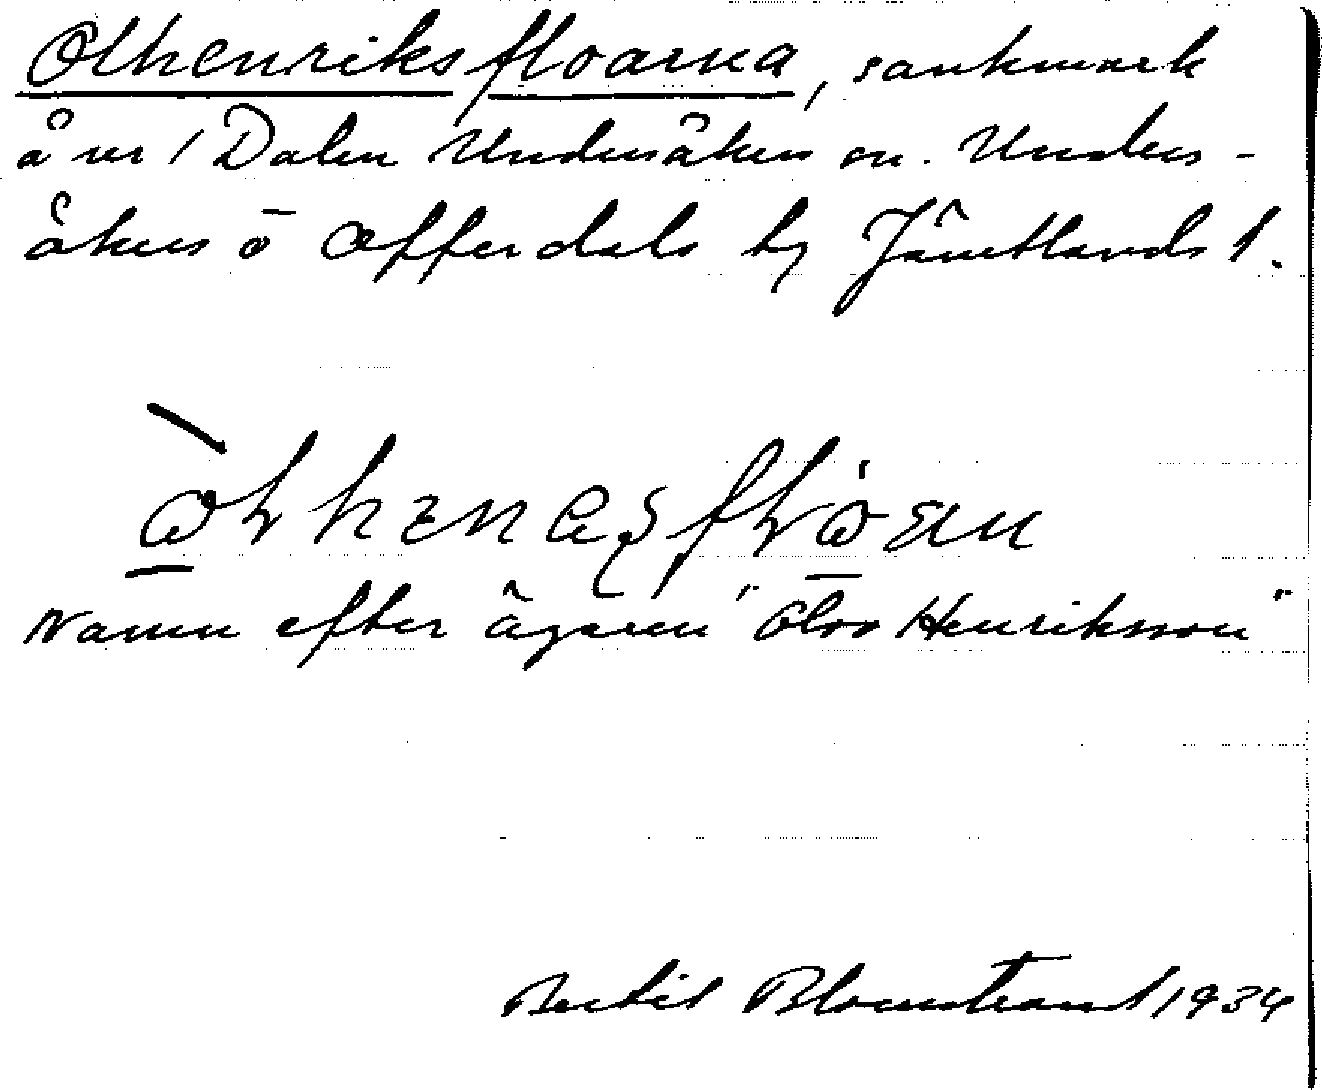 Olhenriksfloarna, sankmark
å ur 1 Dalen Undersåkers sn. Unders-
åkers o Offerdals hg Jämtlands l.
Namn efter ägaren "Olov Henriksson"
Bertil Blomstrand 1934